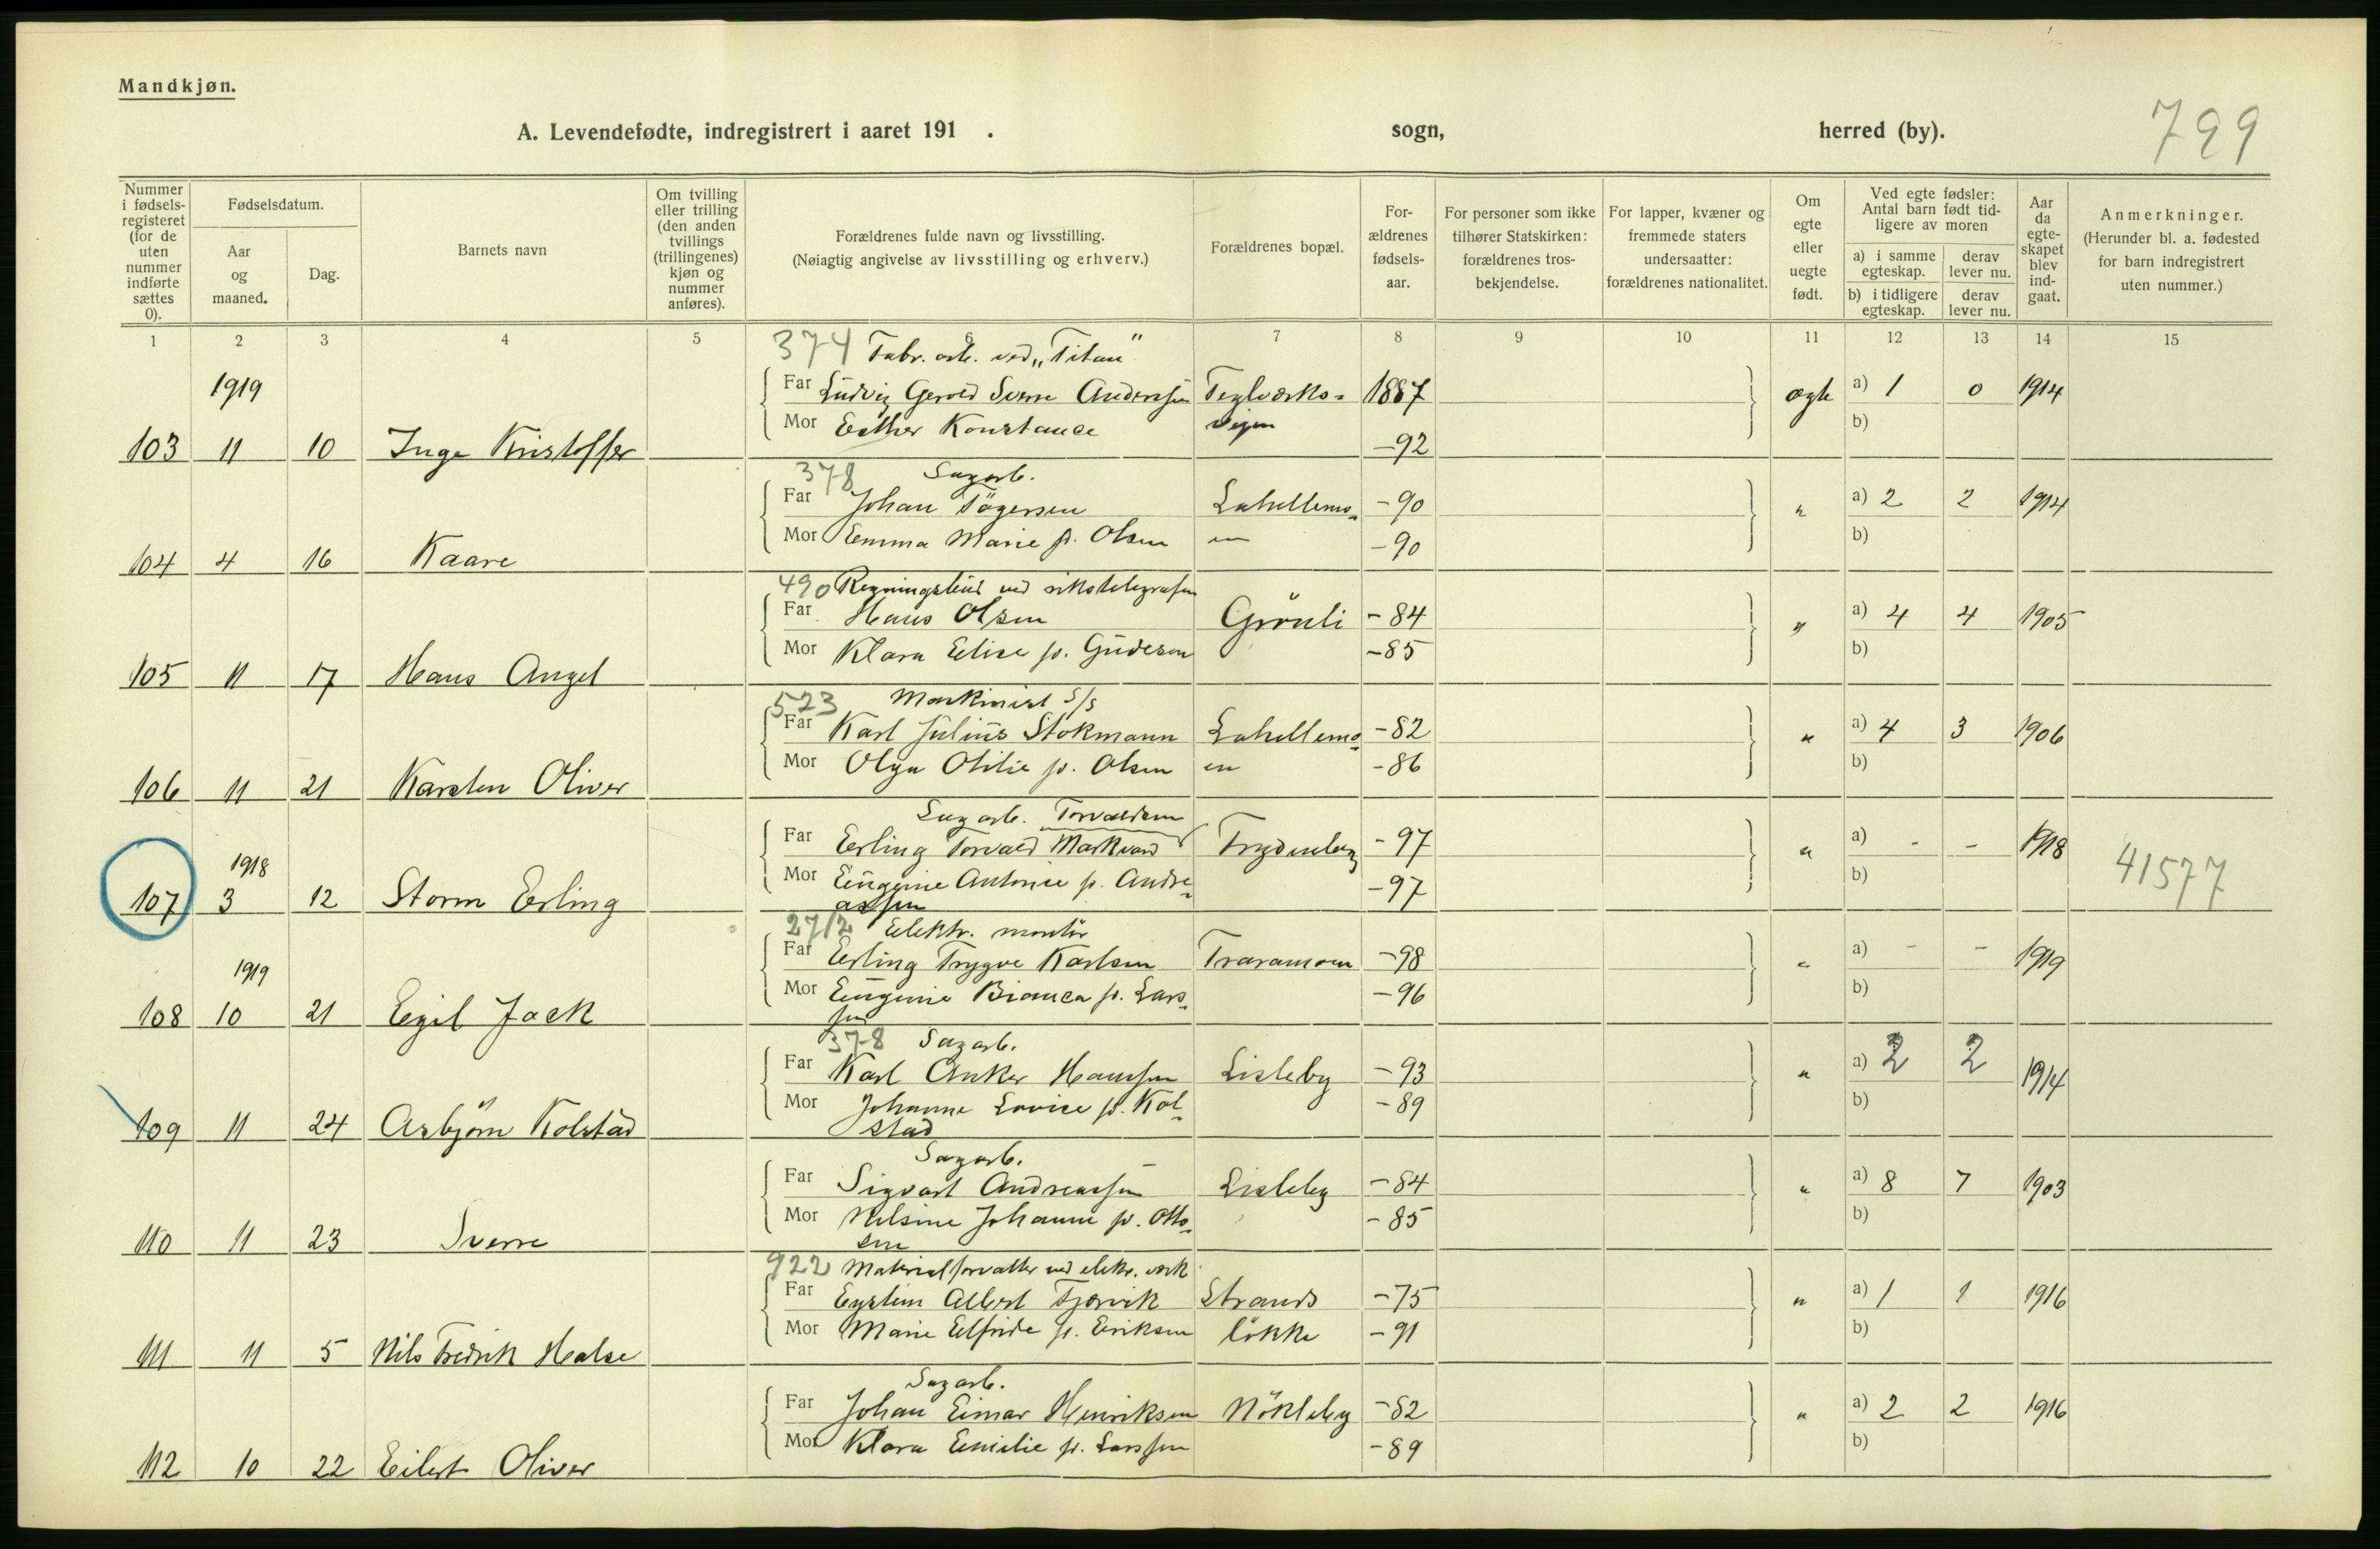 Mandkjøn.
A. Levendefødte, indregistrert i aaret 191 . sogn, herred (by).
799
Nummer i fødsels-registeret (for de uten nummer indførte sættes 0).
Fødselsdatum.
Aar og maaned.
Dag.
Barnets navn
Om tvilling eller trilling (den anden tvillings (trillingenes) kjøn og nummer anføres).
Forældrenes fulde navn og livsstilling.
(Nøiagtig angivelse av livsstilling og erhverv.)
Forældrenes bopæl.
For-ældrenes fødsels-aar.
For personer som ikke tilhører Statskirken: forældrenes tros-bekjendelse.
For lapper, kvæner og fremmede staters undersaatter: forældrenes nationalitet.
Om egte eller uegte født.
Ved egte fødsler: Antal barn født tid-ligere av moren
a) i samme egteskap.
derav lever nu.
b) i tidligere egteskap.
derav lever nu.
Aar da egte-skapet blev ind-gaat.
Anmerkninger.
(Herunder bl. a. fødested for barn indregistrert uten nummer.)
1 2 3 4 5 6 7 8 9 10 11 12 13 14 15
374 Fabr. arb. ved „Titan"
1919
Far Ludvig Gerold Sverre Anderssen Teglverks- 1887 ægte a) 1 0 1914
Mor Esther Konstance veien -92 b)
103 11 10 Inge Kristoffer
378 Sagarb.
Far Johan Tögersen Lahellemo- -90 " a) 2 2 1914
Mor Emma Marie f. Olsen en -90 b)
104 4 16 Kaare
490 Regningsbud ved rikstelegrafen
Far Hans Olsen Grönli -84 " a) 4 4 1905
Mor Klara Elise f. Gudesen -85 b)
105 11 17 Hans Angel
523 Maskinist S/S
Far Karl Julius Stokmann Lahellemo- -82 " a) 4 3 1906
Mor Olga Otilie f. Olsen en -86 b)
106 11 21 Karsten Oliver
Sagarb. Torvaldsen
Far Erling Torvald Markvard Frydenberg -97 " a) - - 1918
1918
Mor Eugenie Antonie f. Andre- -97 b) 41577
107 3 12 Storm Erling
assen
2712 Elektr. montör
Far Erling Trygve Karlsen Traramoen -98 " a) - - 1919
1919
Mor Eugenie Bianca f. Lars- -96 b)
108 10 21 Egil Jack
sen
378 Sagarb.
Far Karl Anker Hanssen Lisleby -93 " a) 2 2 1914
Mor Johanne Lovise f. Kol- -89 b)
109 11 24 Asbjörn Kolstad
stad
Sagarb.
Far Sigvart Andreassen Lisleby -84 " a) 8 7 1903
Mor Nilsine Johanne f. Otto- -85 b)
110 11 23 Sverre
sen
922 Materialforvalter ved elektr. verk
Far Eystein Albert Tjervik Strands -75 " a) 1 1 1916
Mor Marie Elfride f. Eriksen lökke -91 b)
111 11 5 Nils Fredrik Halse
Sagarb.
Far Johan Einar Henriksen Nökleby -82 " a) 2 2 1916
Mor Klara Emilie f. Larssen -89 b)
112 10 22 Eilert Oliver